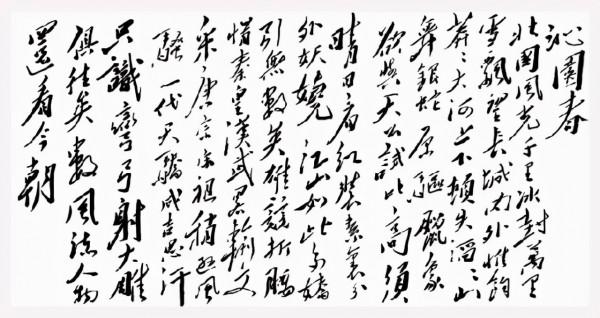 沁園春
北國風光千里冰封萬里
雪飄望長城內外惟餘
莽々大河上下頓失滔々山
舞銀蛇原驅臘象
欲與天公試比高須
晴日看紅裝素裹分
外妖嬈江山如此多嬌
引無數英雄競折腰
惜秦皇漢武略輸文
采唐宗宋祖稍遜風
騷一代天驕成吉思汗
只識彎弓射大雕
俱往矣數風流人物
還看今朝